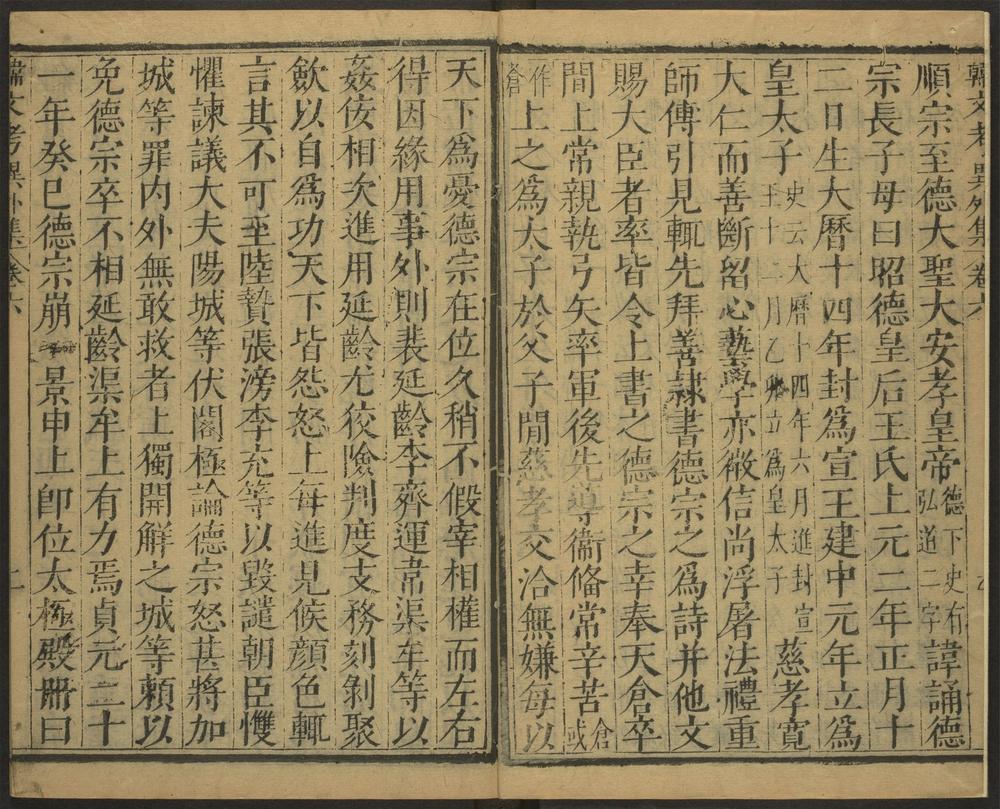 韓文考異外集卷六
順宗至德大聖大安孝皇帝德下史有弘道二字諱誦德
宗長子母曰昭德皇后王氏上元二年正月十
二日生大曆十四年封爲宣王建中元年立爲
皇太子史云大曆十四年六月進封宣王十二月乙卯立爲皇太子慈孝寬
大仁而善斷留心藝學亦微信尚浮屠法禮重
師傅引見輒先拜善隸書德宗之爲詩并他文
賜大臣者率皆令上書之德宗之幸奉天倉卒
間上常親執弓矢率軍後先導衞俻常辛苦倉或
作蒼上之爲太子於父子間慈孝交洽無嫌每以
天下爲憂德宗在位久稍不假宰相權而左右
得因緣用事外則裴延齡李齊運韋渠牟等以
姦佞相次進用延齡尤狡險判度支務刻剝聚
歛以自爲功天下皆怨怒上每進見候顏色輒
言其不可至陸贄張滂李充等以毀譴朝臣慄
懼諫議大夫陽城等伏閤極論德宗怒甚將加
城等罪内外無敢救者上獨開解之城等賴以
免德宗卒不相延齡渠牟上有力焉貞元二十
一年癸巳德宗崩景申上卽位太極殿冊曰
韓文考異外集卷六
二